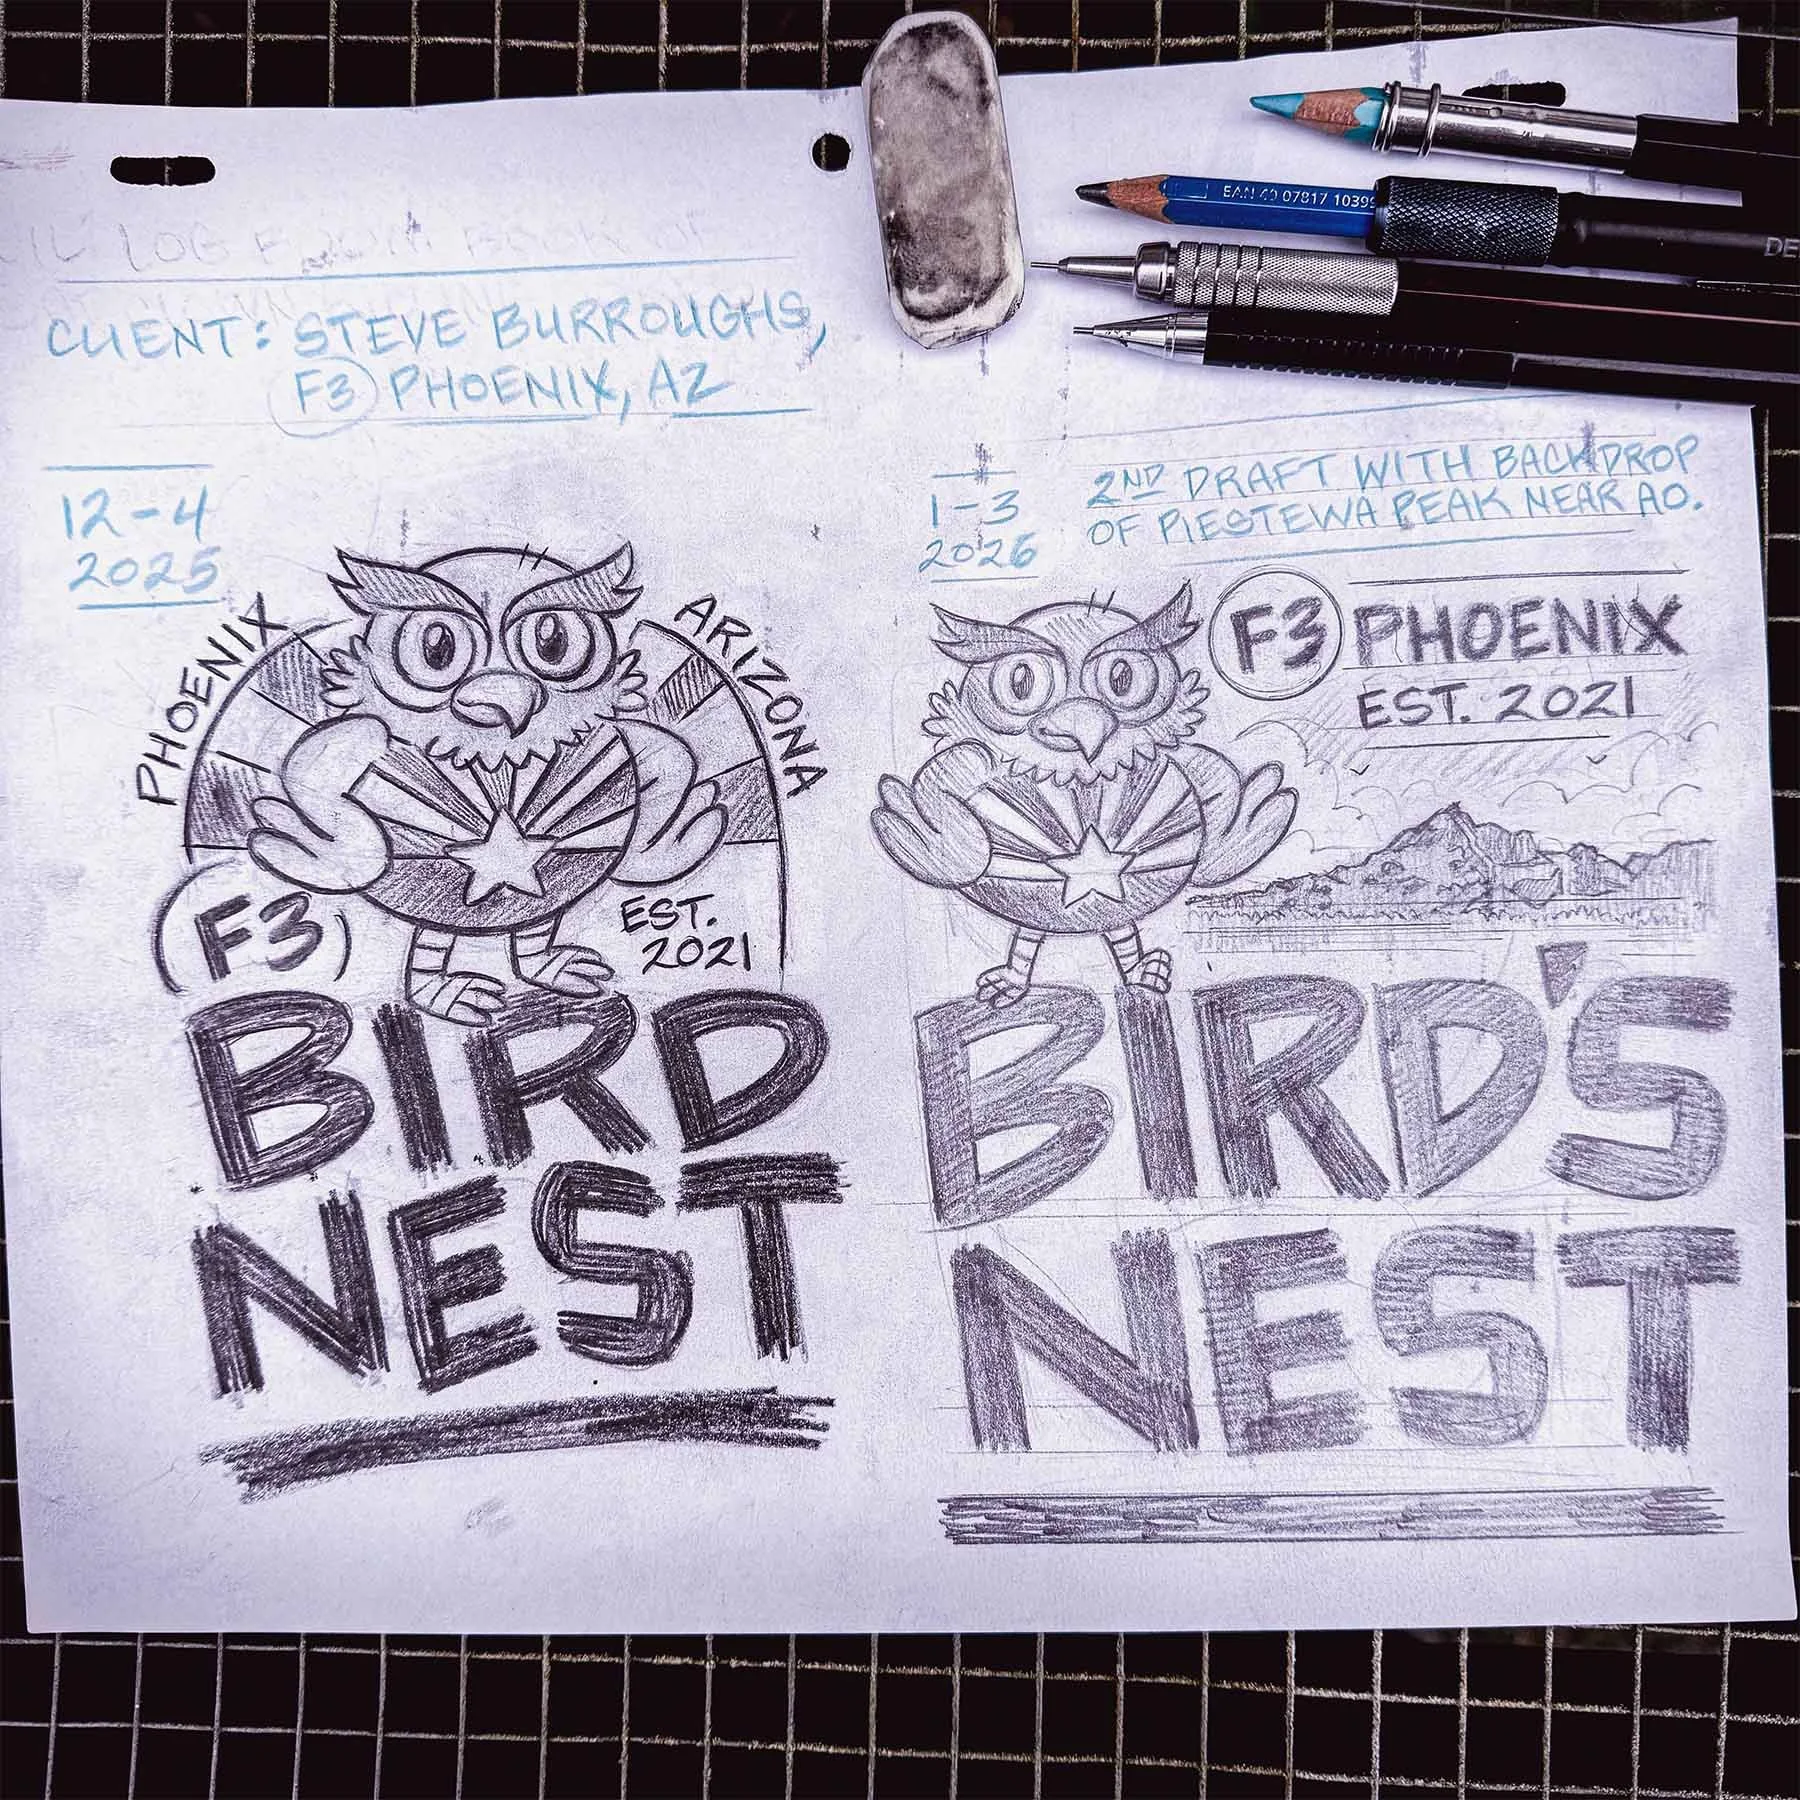 CLIENT: STEVE BURROUGHS,
F3 PHOENIX, AZ
12-4
2025
PHOENIX
ARIZONA
F3
EST.
2021
BIRD
NEST
1-3
2026
2ND DRAFT WITH BACKDROP
OF PIESTEWA PEAK NEAR AO.
F3 PHOENIX
EST. 2021
BIRD'S
NEST
EAN 40 07817 10399
DE